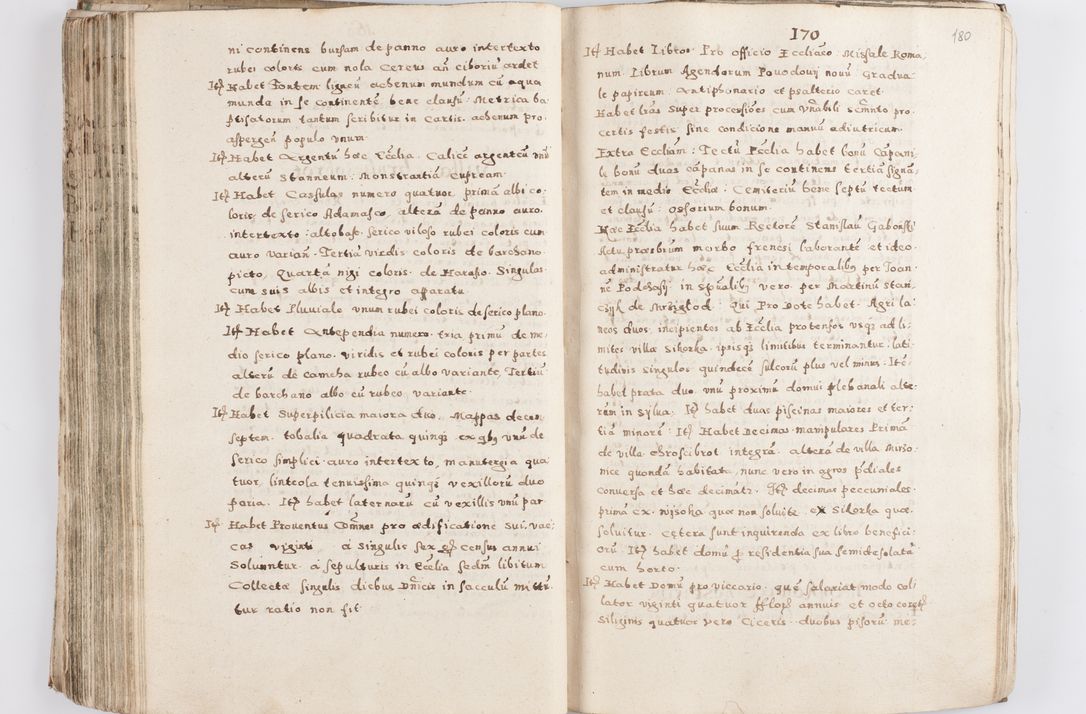 ni continens bursam de panno auro intertexto
rubei coloris cum nola Cereus añ ciboriũ ardet
Itȩ Habet Fontem ligneũ achenum mundum cũ aqua
munda in se continentẽ bene clausũ. Metrica ba
ptisatorum tantum scribitur in Cartis. achenum pro
aspergeñ populo vnum.
Itȩ Habet Argentũ hæc Ecclia. Calicẽ argenteũ vnũ
alterũ Stanneum. Monstrantiã Cupream.
Itȩ Habet Cassulas numero quatuor primã albi co,
loris, de serico Adamasco, alterã de panno auro
intertexto altobass. serico viloso rubei coloris cum
auro variañ. Tertiã viridis coloris de barchano
picto, Quartã nigi coloris de Harasso. Singulas
cum suis albis et integro apparatu
Itȩ Habet Pluuiale vnum rubei coloris de serico plano.
Itȩ Habet Antependia numero. tria primũ de me,
dio serico plano. viridis et rubei coloris per partes
alterũ de camcha rubeo cũ albo variante, Tertiũ
de barchano albo cũ rubeo, variante
Itȩ Habet Superpilicia maiora duo. Mappas decem
septem. tobalia quadrata quinqȝ ex qby vnũ de
serico simplici auro intertexto, manutergia qua
tuor, linteola tenuissima quinqȝ vexillorũ duo
paria. Itȩ habet laternarũ cũ vexillis vnũ par
Itȩ Habet Prouentus Om̃es pro ædificatione sui. vac:
cas viginti á Singulis Sex gȩ census annui
Soluuntur. á sepulturis in Ecclia secdm libitum
Collectæ Singulis diebus Dñicis in sacculũ mittũ,
tur ratio non fit
170
180
Itȩ Habet Libros. Pro officio Eccliaco. Missale Roma,
num. Librum Agendorum Pouodouij nouũ Gradua
le papireum. Antiphonario et psalterio caret.
Habet lras super processiões cum vñabili scm̃nto pro
certis festis sine condicione manuũ adiutricum.
Extra Eccliam: Tectũ Ecclia habet bonũ Cãpani
le bonũ duas cãpanas in se continens tertiã signã
tem in medio Ecclæ. Cemiteriũ bene septũ tectum
et clausũ. Ossorium bonum.
Hæc Ecclia habet suum Rectorẽ Stanislaũ Gabońskj
Actu præsbrũm morbo frenesi laborantẽ et ideo
administratur hæc Ecclia in temporalibq per Joan
nẽ Podosskj in spũalibq vero per Martinũ Stań
czyk de Mrziglod. Qui Pro Dote habet. Agri la
neos duos, incipientes ab Ecclia protensos vsqȝ ad li
mites villæ Sikorka. ipsisqȝ limitibus terminantur. lati
tudinis singulos quindecẽ sulcorũ plus vel minus. Itẽ
habet prata duo. vnũ proximũ domui plebanali alte
rum in sylua. Itȩ habet duas piscinas maiores et ter
tiã minorẽ. Itȩ Habet Decimas manipulares Primã
de villa Chroscibrot integrã. alterã de villa Mirzo,
nice quondã habitata, nunc vero in agros pdiales
conuersa et hæc decimãtr. Itȩ decimas pecuniales.
primã ex. Wysoka quæ non soluitr. ex Sikorka quæ
soluitur. Cetera sunt inquirenda ex libro benefici
orũ. Itȩ habet domũ p residentia sua semidesolatã
cum horto.
Itȩ Habet Domũ pro viccario. quẽ salariat modo col
lator viginti quatuor fflops annuis et octo coręts
Siliginis quatuor vero Ciceris. duobus pisorũ me: